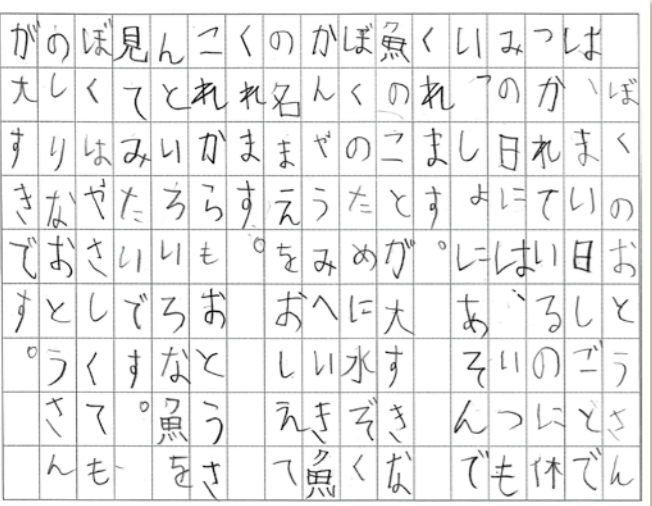 ぼくのおとうさん
は、まい日しごとで
つかれているのに休
みの日には、いつも
いっしょにあそんで
くれます。
魚のことが大すきな
ぼくのために水ぞく
かんやうみへいき魚
の名まえをおしえて
くれます。
これからもおとうさ
んといろいろな魚を
見てみたいです。
ぼくはやさしくても
のしりなおとうさん
が大すきです。